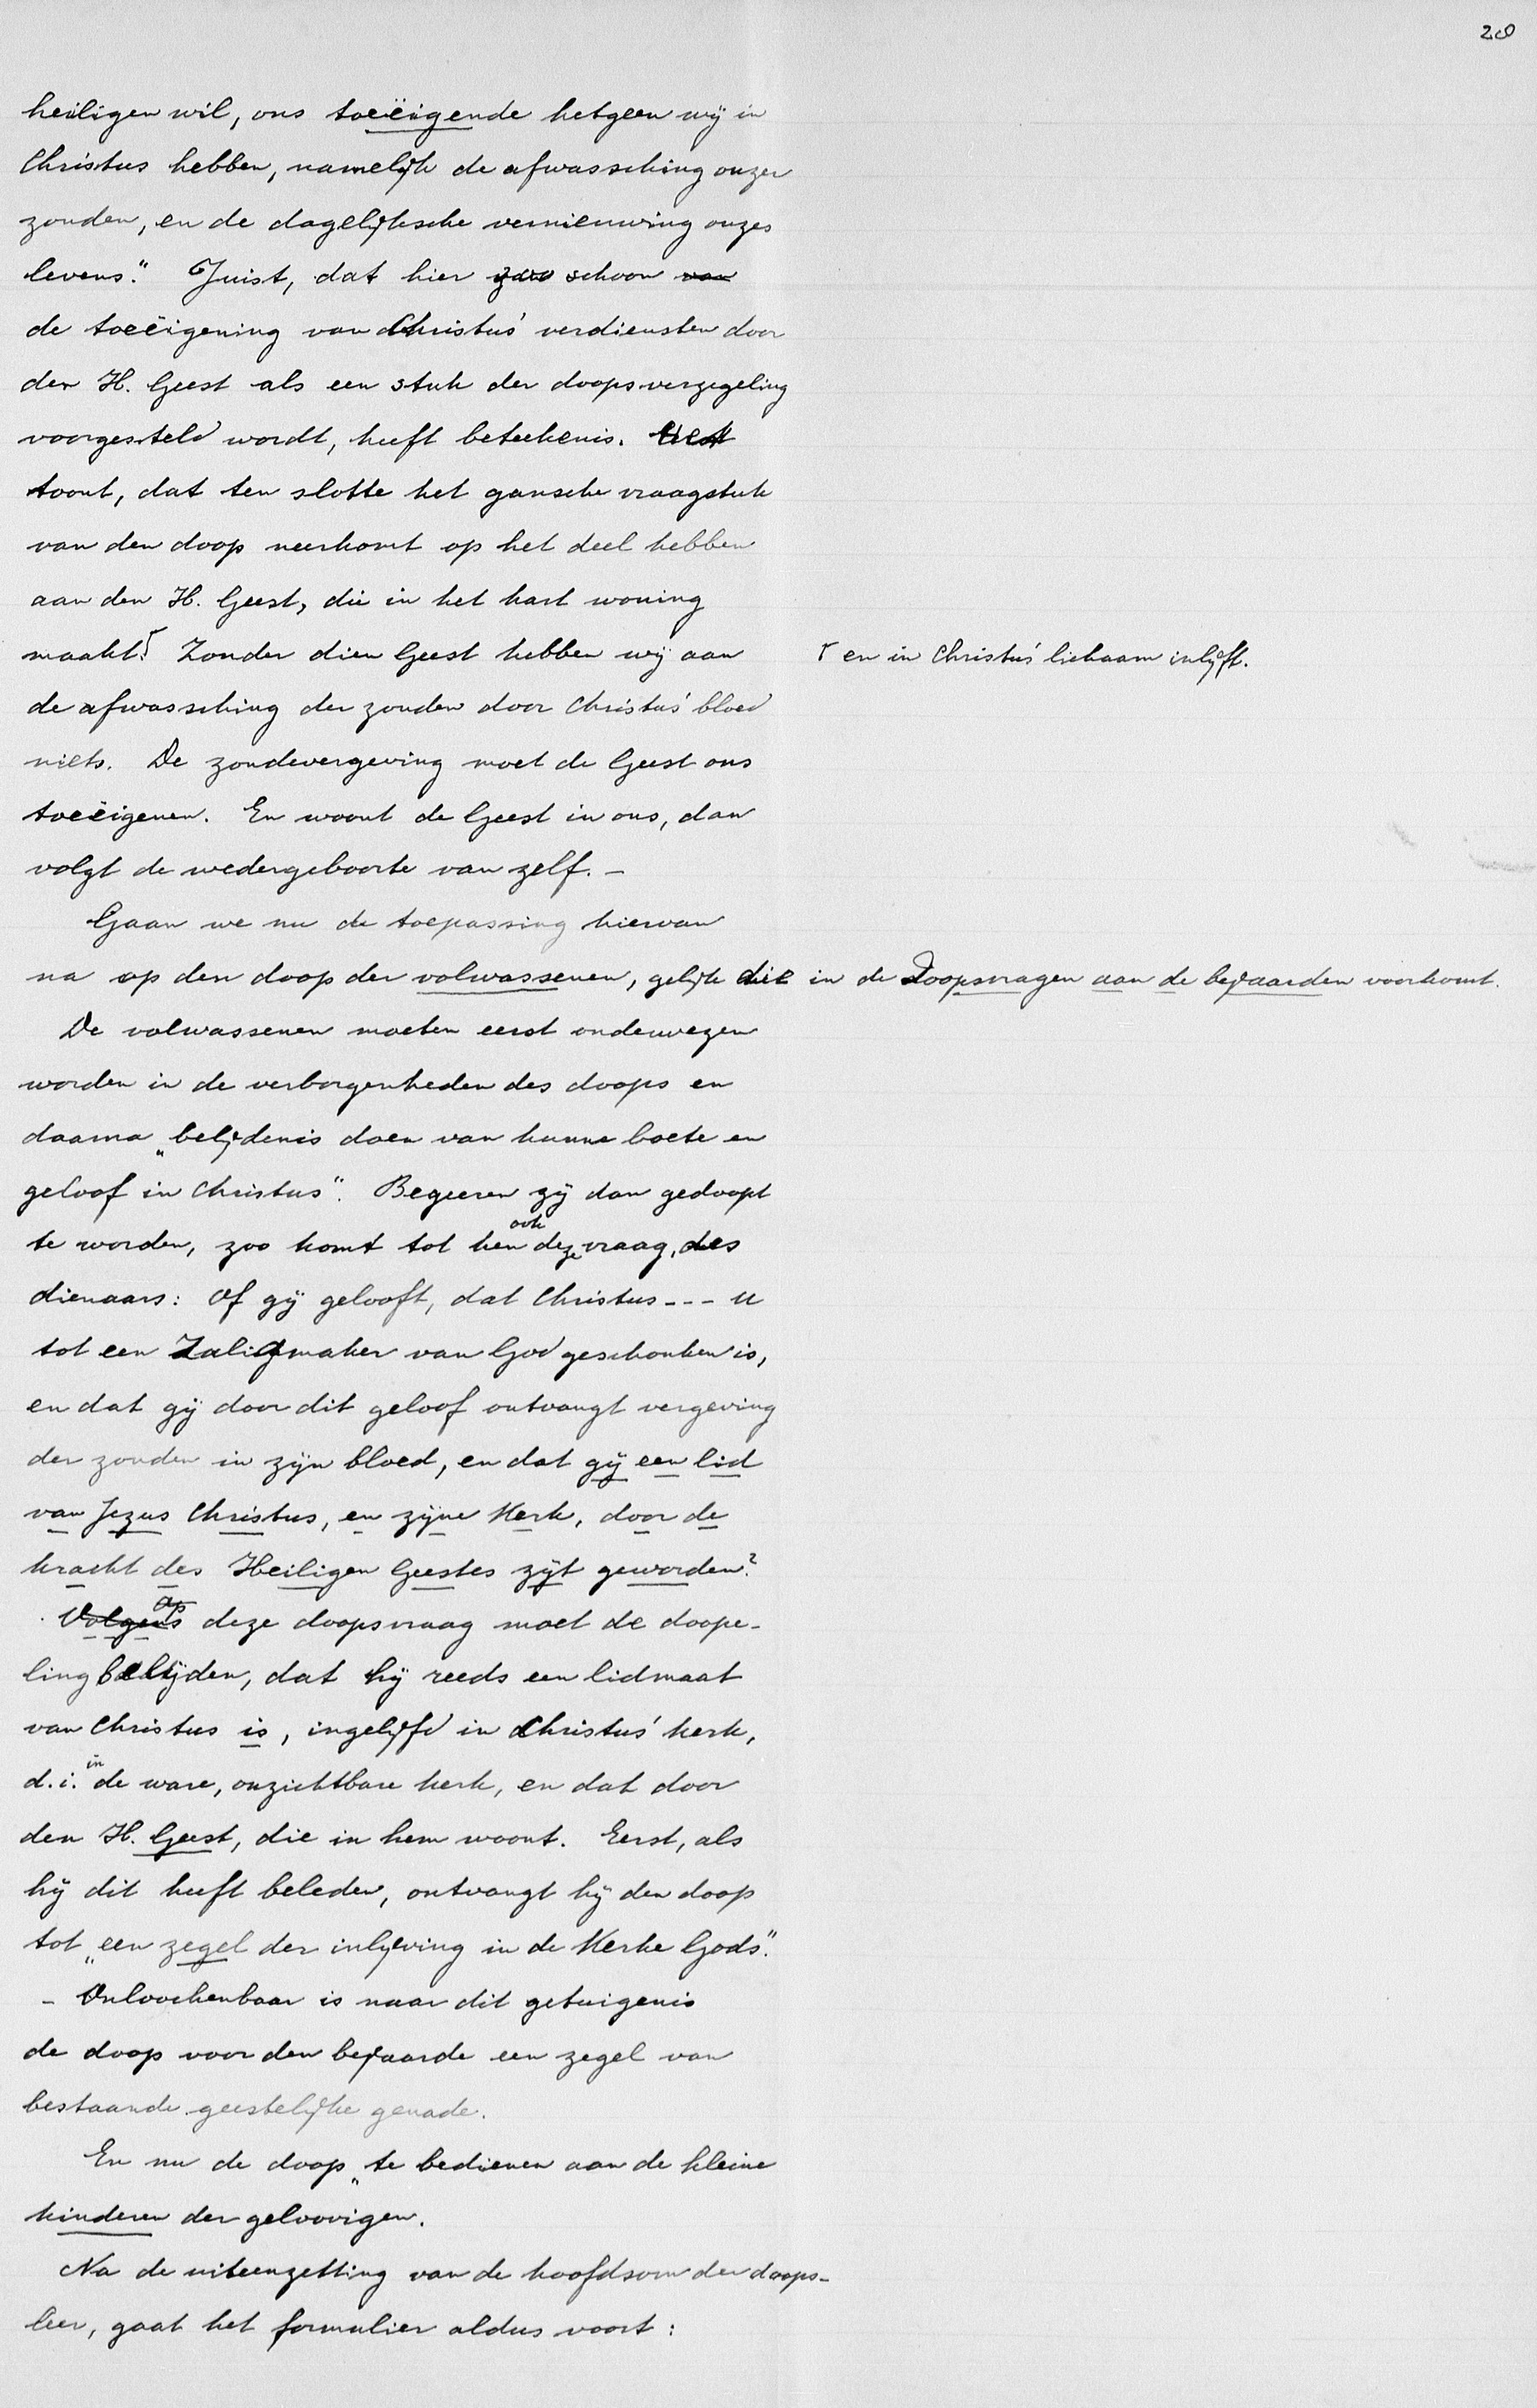 20
heiligen wil, ons toeëigende hetgeen wij in
Christus hebben, namelijk de afwassching onzer
zonden, en de dagelijksche vernieuwing onzes
levens." Juist, dat hier zoo schoon van
de toeëigening van Christus' verdiensten door
den H. Geest als een stuk der doopsverzegeling
voorgesteld wordt, heeft beteekenis. Het
toont, dat ten slotte het gansche vraagstuk
van den doop neerkomt op het deel hebben
aan den H. Geest, die in het hart woning
maakt.Γ Zonder dien Geest hebben wij aan
Γ en in Christus' lichaam inlijft.
de afwassching der zonden door Christus' bloed
niets. De zondevergeving moet de Geest ons
toeëigenen. En woont de Geest in ons, dan
volgt de wedergeboorte van zelf. –
Gaan we nu de toepassing hiervan
na op den doop der volwassenen, gelijk die in de Doopsvragen aan de bejaarden voorkomt.
De volwassenen moeten eerst onderwezen
worden in de verborgenheden des doops en
daarna „belijdenis doen van hunne boete en
geloof in Christus". Begeeren zij dan gedoopt
te worden, zoo komt tot hen ook deze vraag des
dienaars: Of gij gelooft, dat Christus --- u
tot een Zaligmaker van God geschonken is,
en dat gij door dit geloof ontvangt vergeving
der zonden in zijn bloed, en dat gij een lid
van Jezus Christus, en zijne Kerk, door de
kracht des Heiligen Geestes zijt geworden?
Volgens op deze doopsvraag moet de doope-
ling belijden, dat hij reeds een lidmaat
van Christus is, ingelijfd in Christus' kerk,
d.i. in de ware, onzichtbare kerk, en dat door
den H. Geest, die in hem woont. Eerst, als
hij dit heeft beleden, ontvangt hij den doop
tot „een zegel der inlijving in de Kerke Gods".
– Onloochenbaar is naar dit getuigenis
de doop voor den bejaarde een zegel van
bestaande geestelijke genade.
En nu de doop „te bedienen aan de kleine
kinderen der geloovigen.
Na de uiteenzetting van de hoofdsom der doops-
leer, gaat het formulier aldus voort: